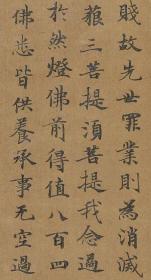 賤故先世罪業則為消滅
藐三菩提須菩提我念過
於然燈佛前得值八百四
佛悉皆供養承事无空過